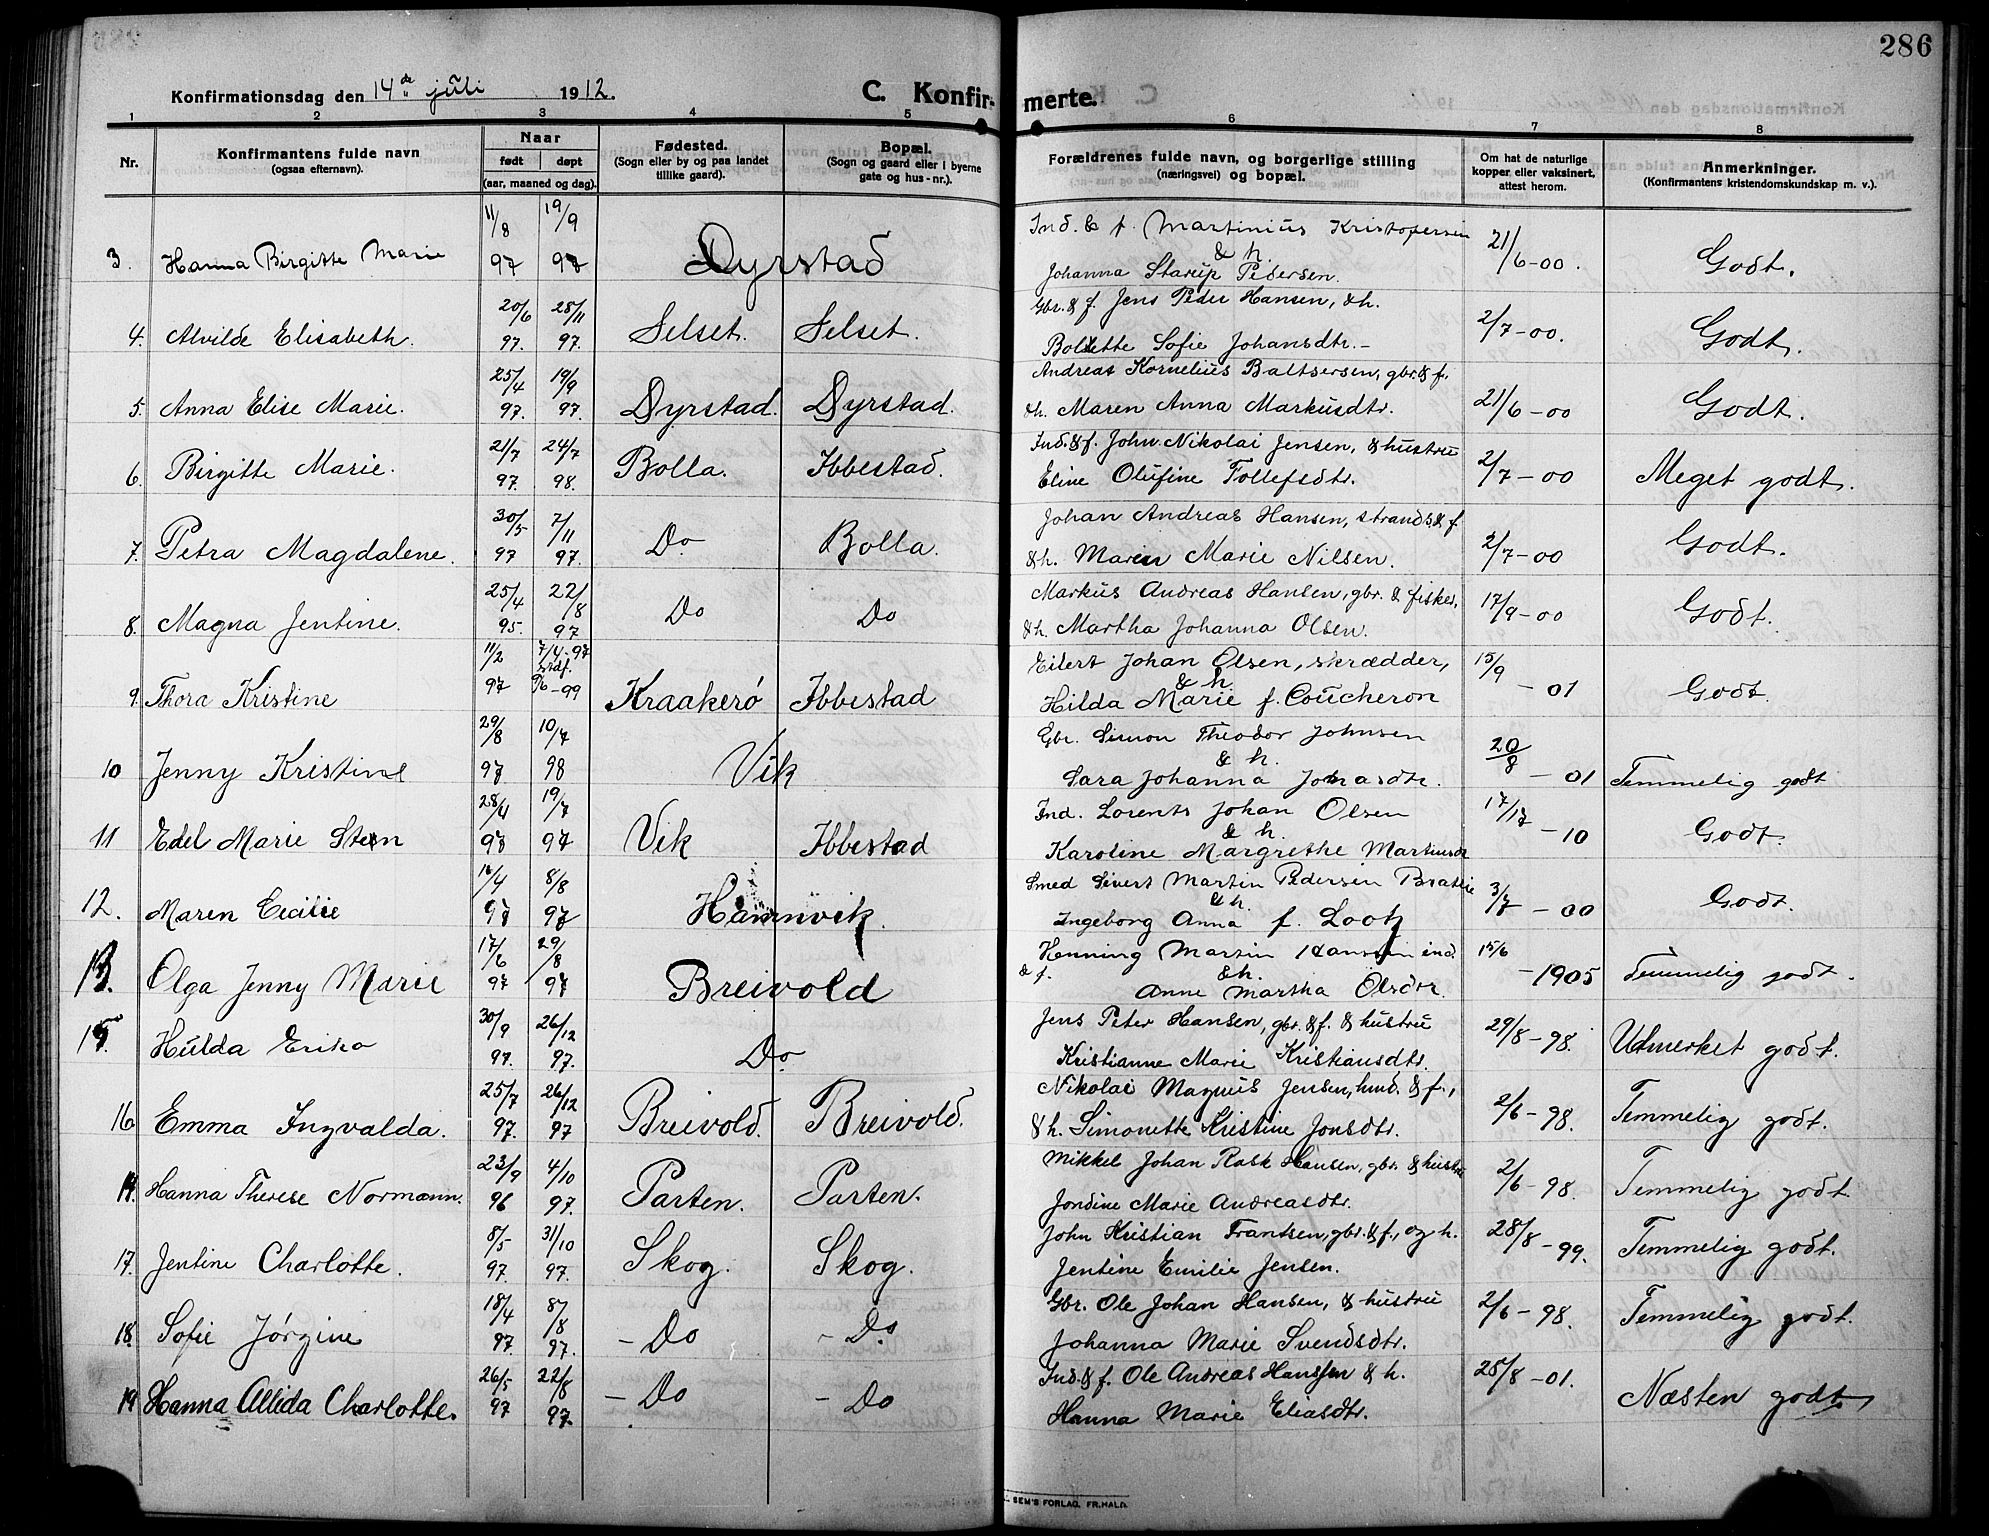 286
Konfirmationsdag den 14de juli 1912.
C. Konfirmerte.
1 2 3 4 5 6 7 8
Nr.
Konfirmantens fulde navn
(ogsaa efternavn).
Naar
født døpt
(aar, maaned og dag).
Fødested.
(Sogn eller by og paa landet
tillike gaard).
Bopæl.
(Sogn og gaard eller i byerne
gate og hus-nr.).
Forældrenes fulde navn, og borgerlige stilling
(næringsvei) og bopæl.
Om hat de naturlige
kopper eller vaksinert,
attest herom.
Anmerkninger.
(Konfirmantens kristendomskundskap m. v.).
11/8 19/9 Ind. & f. Martinius Kristofersen 21/6-00.
3. Hanna Birgitte Marie 97 97 Dyrstad & h. Godt.
Johanna Starup Pedersen.
20/6 28/11 Gbr. & f. Jens Peder Hansen, & h. 2/7-00.
4. Alvilde Elisabeth. 97. 97. Selset. Selset. Godt.
Bolette Sofie Johansdtr.-
25/4 19/9 Andreas Kornelius Baltsersen, gbr. & f.
5. Anna Elise Marie. 97. 97. Dyrstad. Dyrstad. & h. Maren Anna Markusdtr. 21/6-00 Godt.
21/7 24/7 Ind. & f. John Nikolai Jensen, & hustru
6. Birgitte Marie. 97. 98. Bolla. Ibbestad. Eline Olufine Tollefsdtr. 2/7-00 Meget godt.
30/5 7/11 Johan Andreas Hansen, strands. & f.
7. Petra Magdalene. 97 97. Do Bolla. & h. Maren Marie Nilsen. 2/7-00 Godt.
25/4 22/8 Markus Andreas Hansen, gbr. & fisker,
8. Magna Jentine. 95. 97 Do Do & h. Martha Johanna Olsen. 17/9-00 Godt.
11/2 7/4-97 stdf. Eilert Johan Olsen, skrædder, 15/9
9. Thora Kristine 97 -99 Kraakerø Ibbestad & h. -01 Godt.
Hilda Marie f. Coucheron
29/8 10/7 Gbr. Simon Theodor Johnsen 20/8
10 Jenny Kristine 97 98 Vik & h. -01 Temmelig godt
Sara Johanna Jonasdtr.
28/4 19/7 Ind. Lorents Johan Olsen 17/17
11 Edel Marie Steen 97 97 Vik Ibbestad & h. -10 Godt.
Karoline Margrethe Martinsdr
16/4 8/8 Smed Sivert Martin Pedersen Bratlie 3/7-00
12. Maren Cecilie 97 97 Hamnvik. & h. Godt.
Ingeborg Anna f. Lootz
17/6 29/8 Henning Martin Hansen ind. 15/6
13. Olga Jenny Marie 97 97 Breivold & f. & h. -1905 Temmelig godt.
Anne Martha Olsdtr.
30/9 26/12 Jens Peter Hansen, gbr. & f. & hustru
15. Hulda Erika 97. 97. Do Kristianne Marie Kristiansdtr. 29/8-98. Utmerket godt.
25/7 26/12 Nikolai Magnus Jensen, hmd. & f.,
16 Emma Ingvalda. 97. 97 Breivold. Breivold. & h. Simonette Kristine Jonsdtr. 2/6-98. Temmelig godt.
23/9 4/10 Mikkel Johan Rask Hansen, gbr. & hustru
Hanna Therese Normann. 96 97. Parten. Parten. Jondine Marie Andreasdtr. 2/6-98. Temmelig godt
8/5 31/10 John Kristian Frantsen, gbr. & f., og h.
17. Jentine Charlotte. 97. 97. Skog. Skog. Jentine Emilie Jensen. 28/8-99. Temmelig godt.
18/4 8/8 Gbr. Ole Johan Hansen, & hustru
18. Sofie Jørgine 97 97. - Do - Do Johanna Marie Svendsdtr. 2/6-98. Temmelig godt.
26/5 22/8 Ind. & f. Ole Andreas Hanssen & h.
19 Hanna Allida Charlotte. 97 97. - Do - Do Hanna Marie Eliasdtr. 25/8-01. Næsten godt
SEM'S FORLAG, FR.HALD.